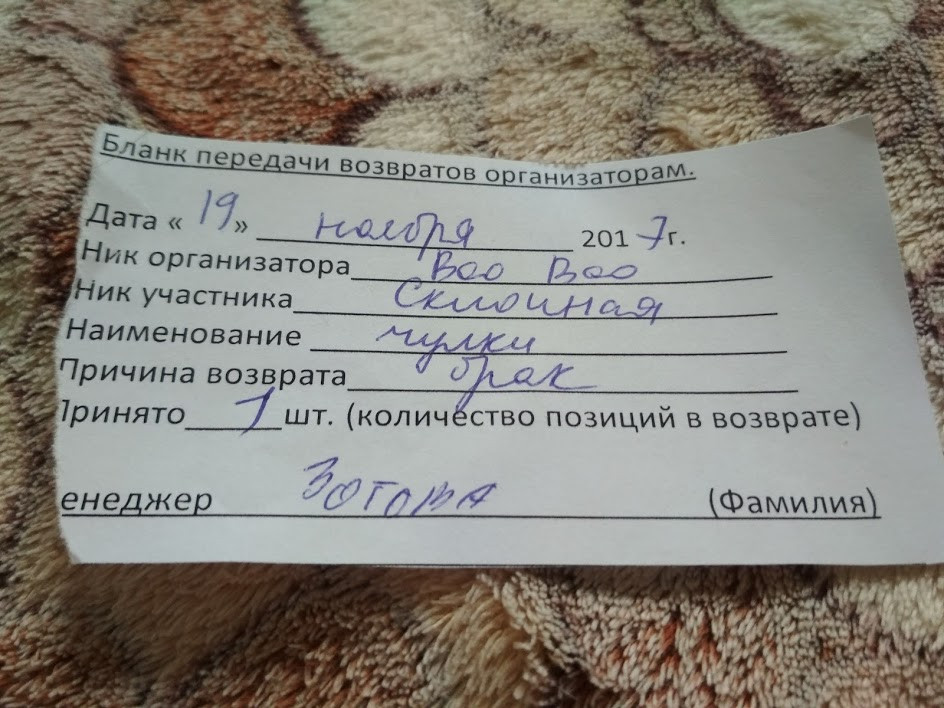 Бланк передачи возвратов организаторам.
Дата « 19 » ноября 2017г.
Ник организатора Вао Вао
Ник участника
Наименование чулки
Причина возврата брак
Принято 1 шт. (количество позиций в возврате)
енеджер Зотова (Фамилия)